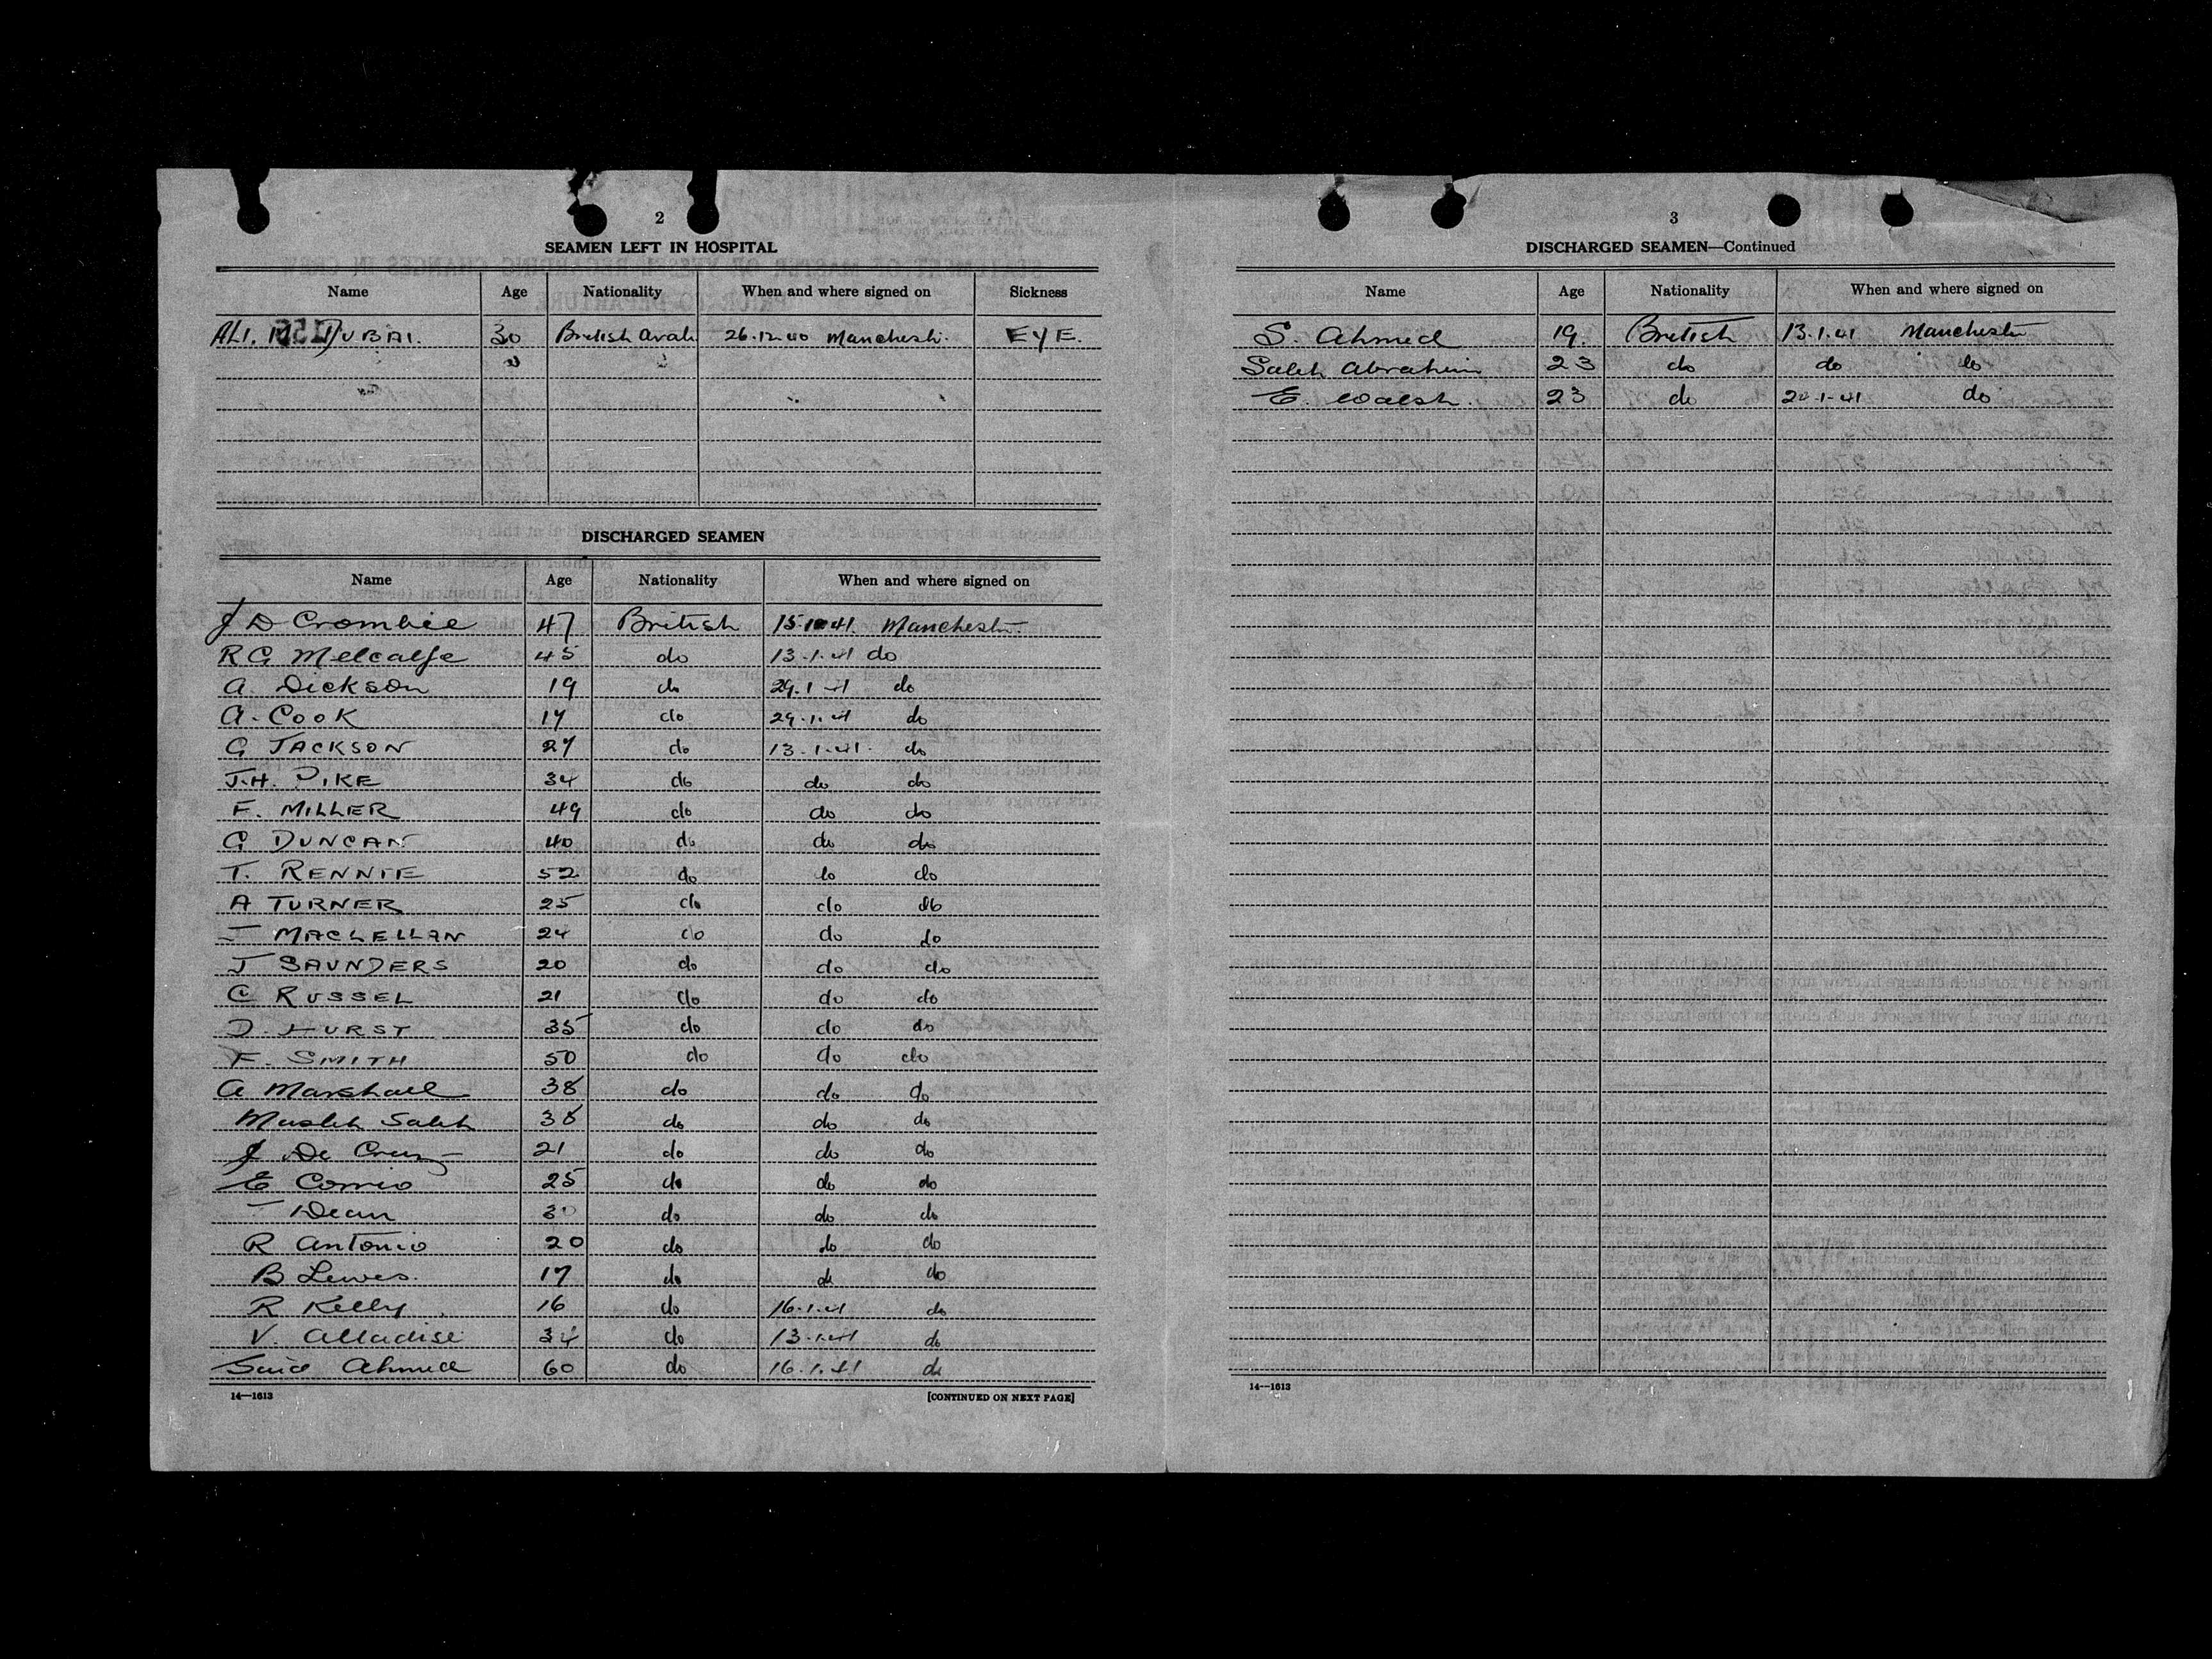 2
SEAMEN LEFT IN HOSPITAL
Name Age Nationality When and where signed on Sickness
ALI. DUBAI. 30 British Arab 26.12.40 Manchestr. EYE.
DISCHARGED SEAMEN
Name Age Nationality When and where signed on
J D Crombie 47 British 15 41. Manchestr.
RG Metcalfe 45 do 13.1.41 do
A. Dickson 19 do 29.1 41 do
A. Cook 17 do 29.1.41 do
G JACKSON 27 do 13.1.41. do
J.H. PIKE 34 do do do
F. MILLER 49 do do do
G DUNCAN 40 do do do
T. RENNIE 52 do do do
A TURNER 25 do do do
J MACLELLAN 24 do do do
J SAUNDERS 20 do do do
C RUSSEL 21 do do do
D. HURST 35 do do do
F. SMITH 50 do do do
A Marshall 38 do do do
Musleh Saleh 38 do do do
J De Cruz 21 do do do
E Comio 25 do do do
T Dean 30 do do do
R Antonio 20 do do do
B Lewes. 17 do do do
R Kelly. 16 do 16.1.41 do
V. Alladise 34 do 13.1.41 do
Said Ahmed 60 do 16.1.41 do
14—1613 [CONTINUED ON NEXT PAGE]
3
DISCHARGED SEAMEN—Continued
Name Age Nationality When and where signed on
S. Ahmed 19. British 13.1.41 Manchestr
Saleh Abrahim 23 do do do
E. Walsh. 23 do 20.1.41 do
14—1613